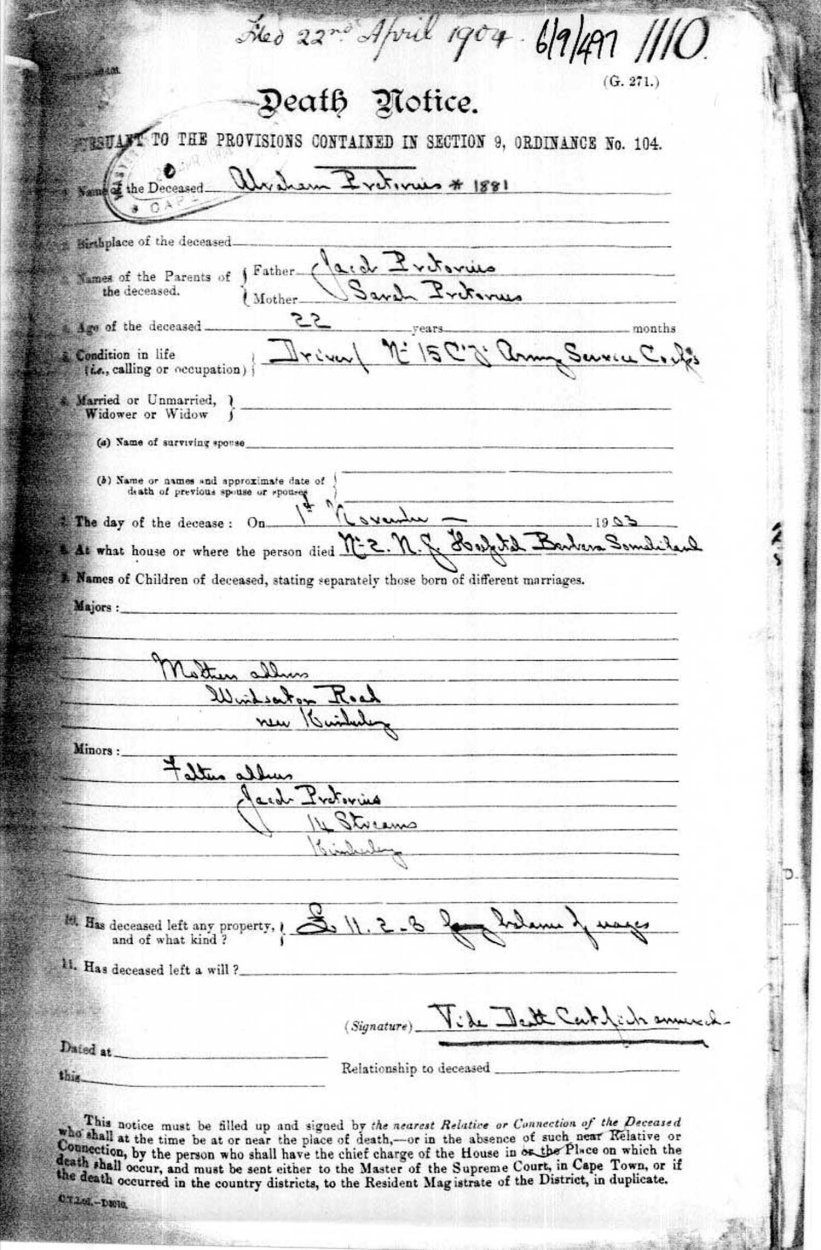 Filed 22nd April 1904. 6/9/497 1110.
(G. 271.)
Death Notice.
PURSUANT TO THE PROVISIONS CONTAINED IN SECTION 9, ORDINANCE No. 104.
1. Name of the Deceased Abraham Pretorius * 1881
2. Birthplace of the deceased
3. Names of the Parents of the deceased. Father Jacob Pretorius
Mother Sarah Pretorius
4. Age of the deceased 22 years months
5. Condition in life (i.e., calling or occupation) Driver No 15 Coy Army Service Corps
6. Married or Unmarried, Widower or Widow
(a) Name of surviving spouse
(b) Name or names and approximate date of death of previous spouse or spouses
7. The day of the decease: On 1st November 1903
8. At what house or where the person died No 2. N. F. Hospital Berbera Somaliland
9. Names of Children of deceased, stating separately those born of different marriages.
Majors:
Mothers address
Windsorton Road
new Kimberley
Minors:
Fathers address
Jacob Pretorius
14 Streams
Kimberley
10. Has deceased left any property, and of what kind? £ 11. 2 - 3 balance of wages
11. Has deceased left a will?
(Signature) Vide Death Certificate annexed
Dated at
this
Relationship to deceased
This notice must be filled up and signed by the nearest Relative or Connection of the Deceased
who shall at the time be at or near the place of death,—or in the absence of such near Relative or
Connection, by the person who shall have the chief charge of the House in or the Place on which the
death shall occur, and must be sent either to the Master of the Supreme Court, in Cape Town, or if
the death occurred in the country districts, to the Resident Magistrate of the District, in duplicate.